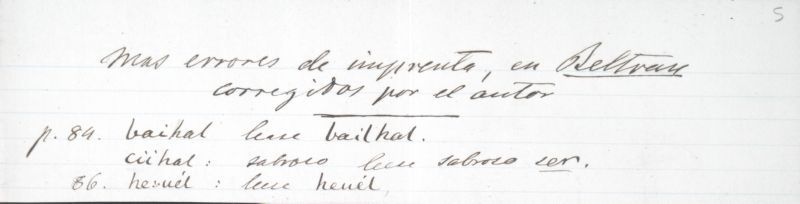 5
Mas errores de imprenta, en Beltran
corregidos por el autor
p. 84. baihal lease bailhal.
ciihal: sabroso lease sabroso ser.
86. heuél: lease heuél,